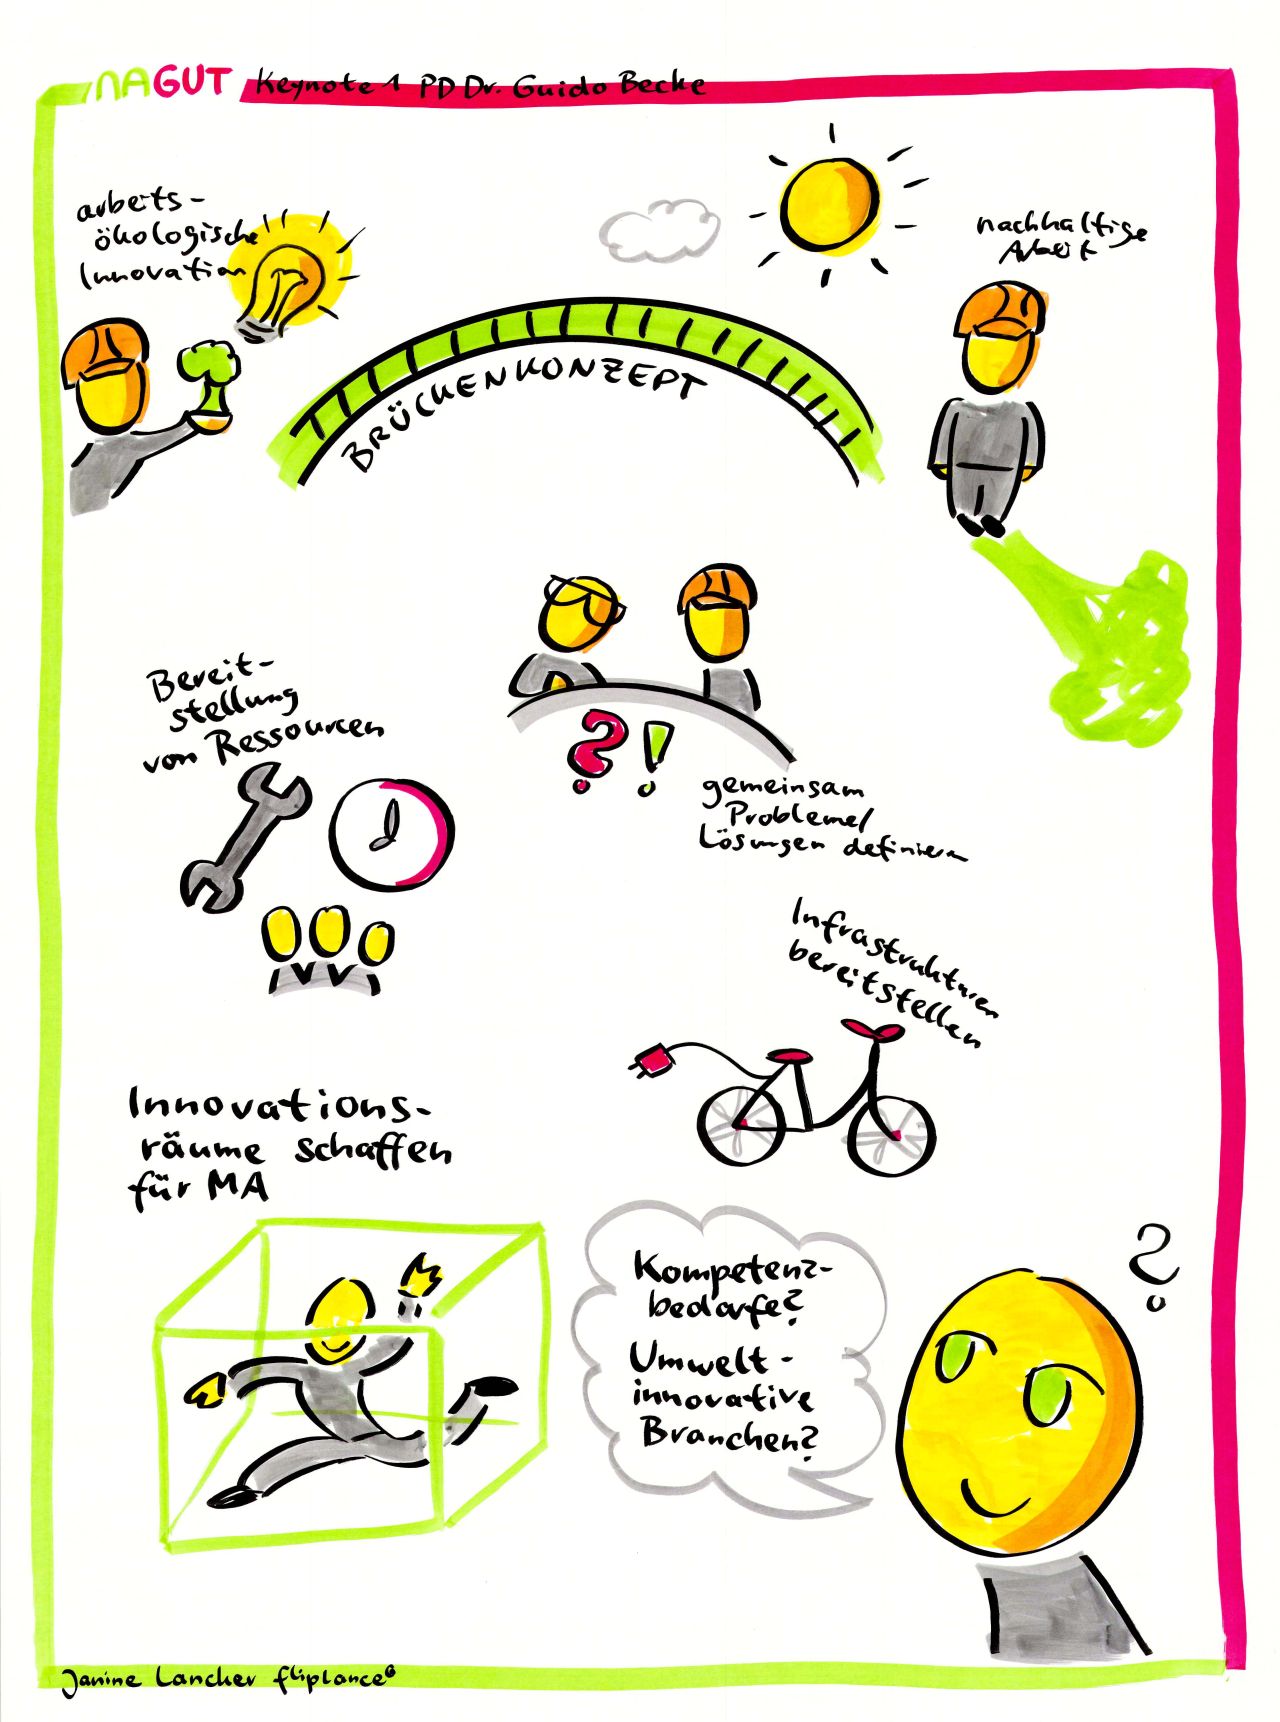 NAGUT Keynote 1 PD Dr. Guido Becke
arbeits-
ökologische
Innovation
nachhaltige
Arbeit
BRÜCKENKONZEPT
Bereit-
stellung
von Ressourcen
?!
gemeinsam
Probleme/
Lösungen definieren
Infrastrukturen
bereitstellen
Innovations-
räume schaffen
für MA
?
Kompetenz-
bedarfe?
Umwelt-
innovative
Branchen?
Janine Lancker fliplance